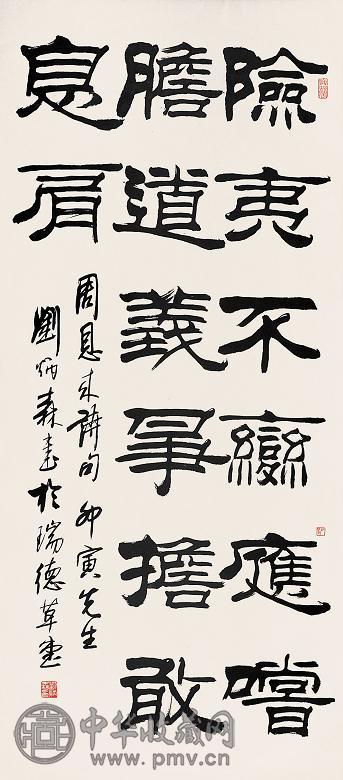 險夷不變應嚐
膽道義爭擔敢
息肩
周恩来詩句 寅先生
劉炳森書於瑞德草堂
中华收藏网
www.pmv.cn